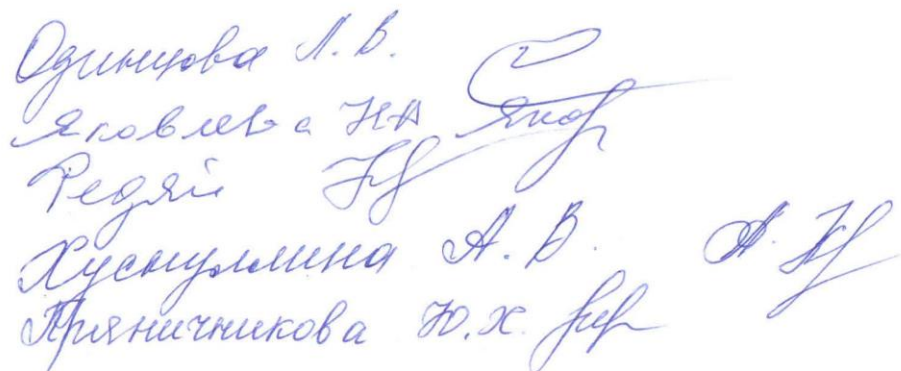 Одинцова Л. В.
Яковлева НА
Редяй
Хуснуллина А. В.
Пряничникова Ю.Х.